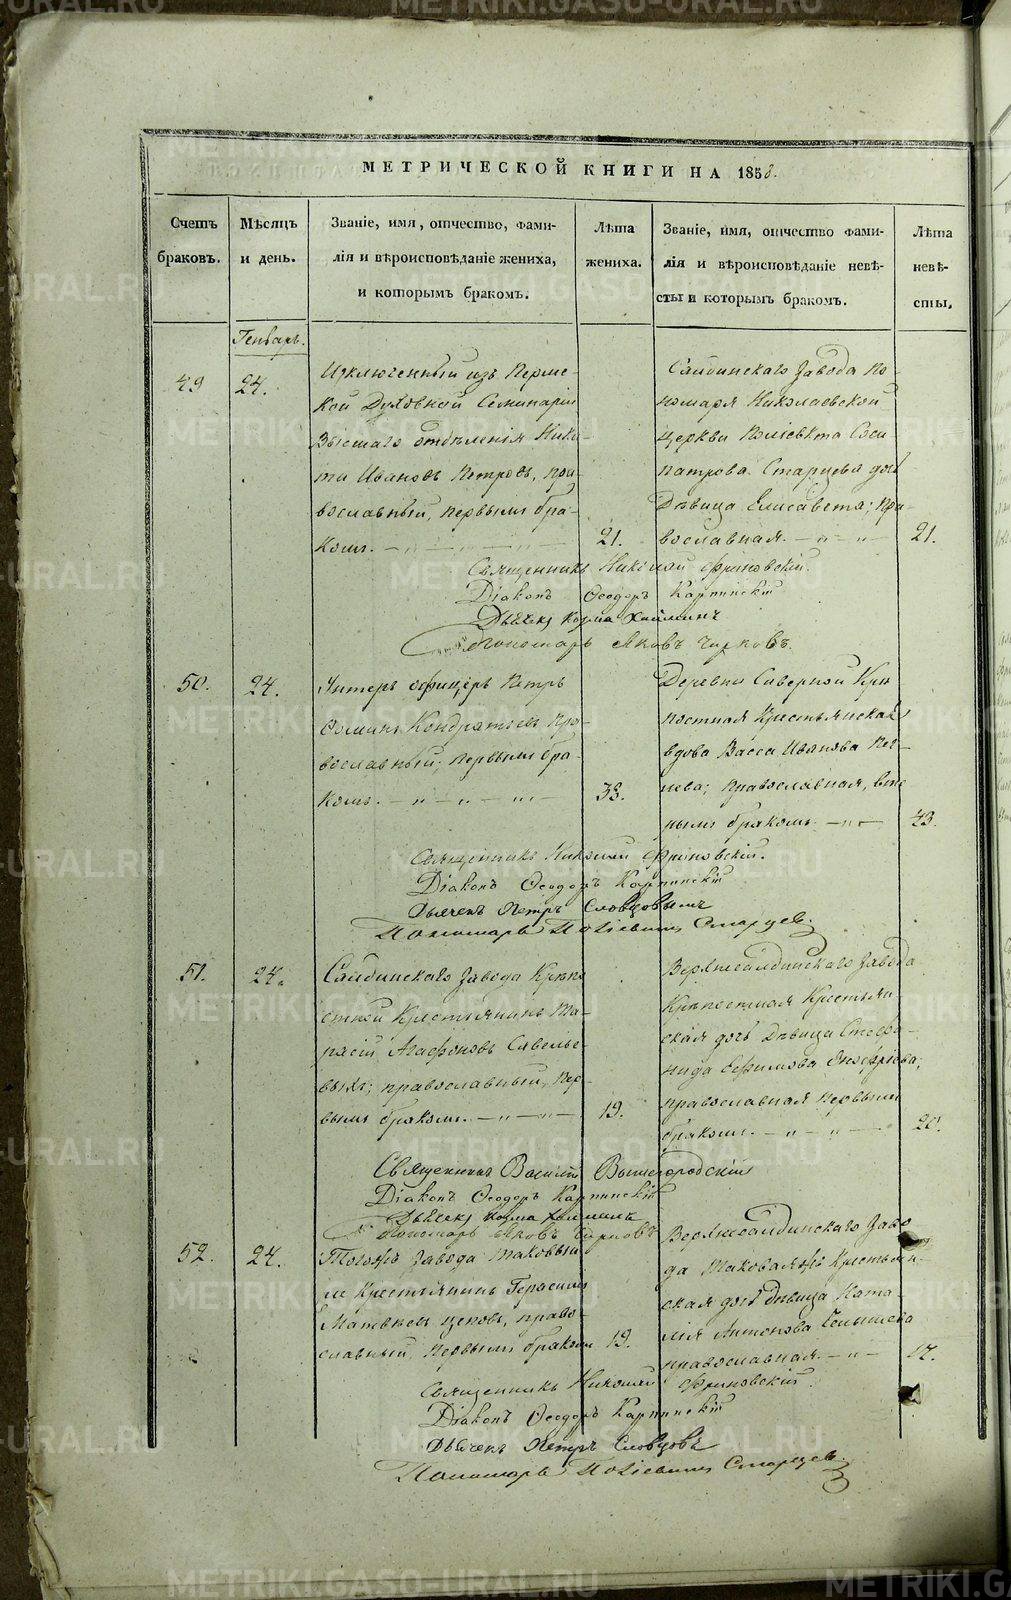 МЕТРИЧЕСКОЙ КНИГИ НА 1858.
Счетъ браковъ.
Мѣсяцъ и день.
Званіе, имя, отчество, фами-
лія и вѣроисповѣданіе жениха,
и которымъ бракомъ.
Лѣта жениха.
Званіе, имя, отчество фами-
лія и вѣроисповѣданіе невѣ-
сты и которымъ бракомъ.
Лѣта невѣ-
сты.
Генварь.
49
24.
Изключенный изъ Перм-
ской Духовной Семинаріи
Высшаго отдѣленія Ники-
та Ивановъ Петровъ, пра-
вославный, первымъ бра-
комъ.
21.
Салдинскаго Завода По-
номаря Николаевской
церкви Поліевкта Соси-
патрова Старцева дочь
Дѣвица Елисавета; пра-
вославная.
21.
Священникъ Николай Фриновскій.
Діаконъ Ѳеодоръ Карпинскій
Дьячекъ Козма Хайминъ
Пономарь Яковъ Чирковъ.
50.
24.
Унтеръ офицеръ Петръ
Ѳоминъ Кондратьевъ пра-
вославный; первымъ бра-
комъ.
38.
Деревни Северной Крѣ-
постная Крестьянская
вдова Васса Иванова
православная, вто-
рымъ бракомъ.
43.
Священникъ Николай Фриновскій.
Діаконъ Ѳеодоръ Карпинскій
Дьячекъ Петръ Словцовъ
Пономарь Поліевктъ Старцев.
51.
24.
Салдинскаго Завода Крѣпо-
стной Крестьянинъ Та-
расій Агафоновъ Савелье-
выхъ; православный, пер-
вымъ бракомъ.
19.
Верхнесалдинскаго Завода
Крѣпостная Крестьян-
ская дочь Дѣвица Стефа-
нида Ефимова
православная первымъ
бракомъ.
20.
Священникъ Василій Вышегородскій
Діаконъ Ѳеодоръ Карпинскій
Дьячекъ Козма Хайминъ
Пономарь Яковъ Чирковъ
52.
24.
Тогожъ Завода таковый
же Крестьянинъ Герасимъ
Матвѣевъ православный, первымъ бракомъ
19.
Верхнесалдинскаго Заво-
да таковаяжъ Крестьян-
ская дочь дѣвица Ната-
лія Антонова
православная.
17.
Священникъ Николай Фриновскій.
Діаконъ Ѳеодоръ Карпинскій
Дьячекъ Петръ Словцовъ
Пономарь Поліевктъ Старцев.
METRIKI.GASO-URAL.RU